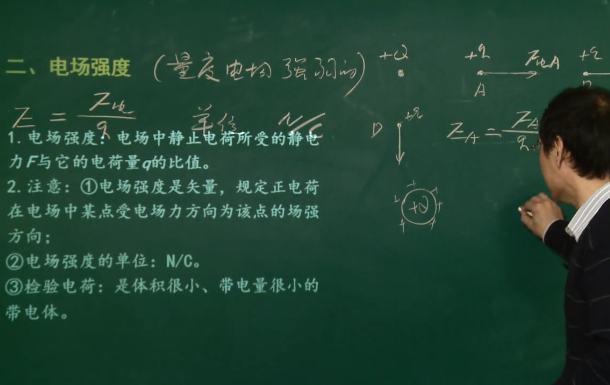 二、电场强度 (量度电场强弱的)
E = F电/q 单位 N/C
1. 电场强度：电场中静止电荷所受的静电
力F与它的电荷量q的比值。
2. 注意：①电场强度是矢量，规定正电荷
在电场中某点受电场力方向为该点的场强
方向；
②电场强度的单位：N/C。
③检验电荷：是体积很小、带电量很小的
带电体。
+Q
+q F电A
A
+q
D +q
E_A = F_A/q
+Q